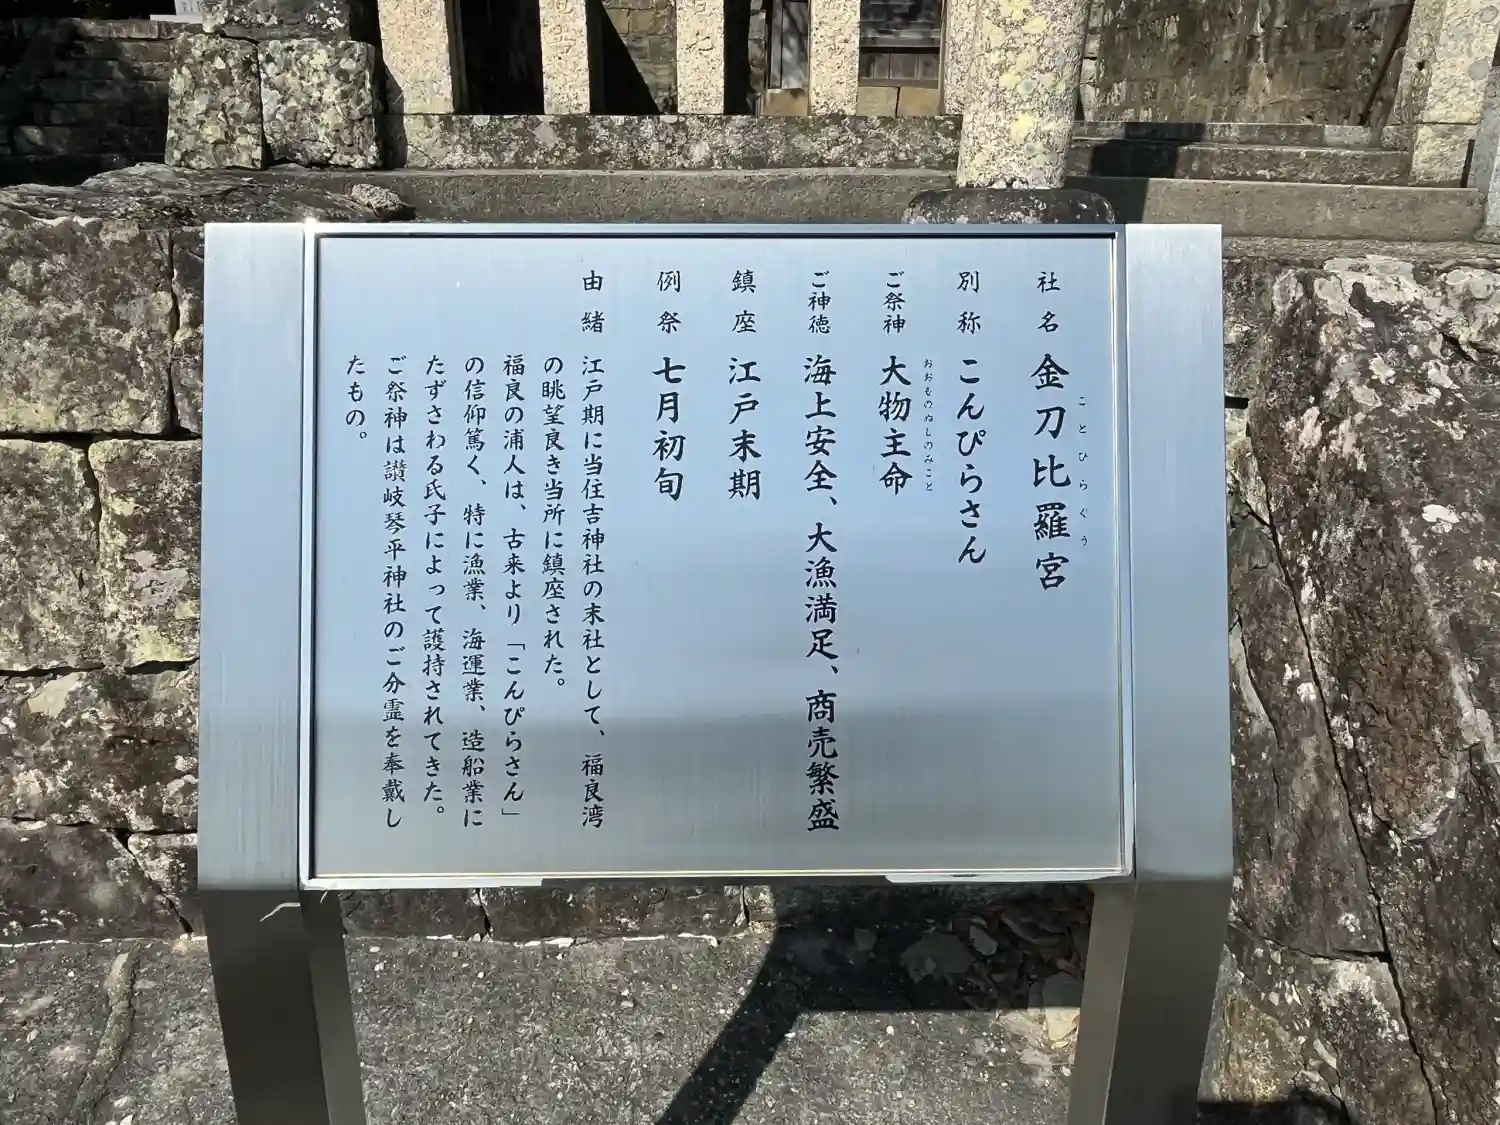 社名 金刀比羅宮
ことひらぐう
別称 こんぴらさん
ご祭神 大物主命
おおものぬしのみこと
ご神徳 海上安全、大漁満足、商売繁盛
鎮座 江戸末期
例祭 七月初旬
由緒 江戸期に当住吉神社の末社として、福良湾
の眺望良き当所に鎮座された。
福良の浦人は、古来より「こんぴらさん」
の信仰篤く、特に漁業、海運業、造船業に
たずさわる氏子によって護持されてきた。
ご祭神は讃岐琴平神社のご分霊を奉戴し
たもの。